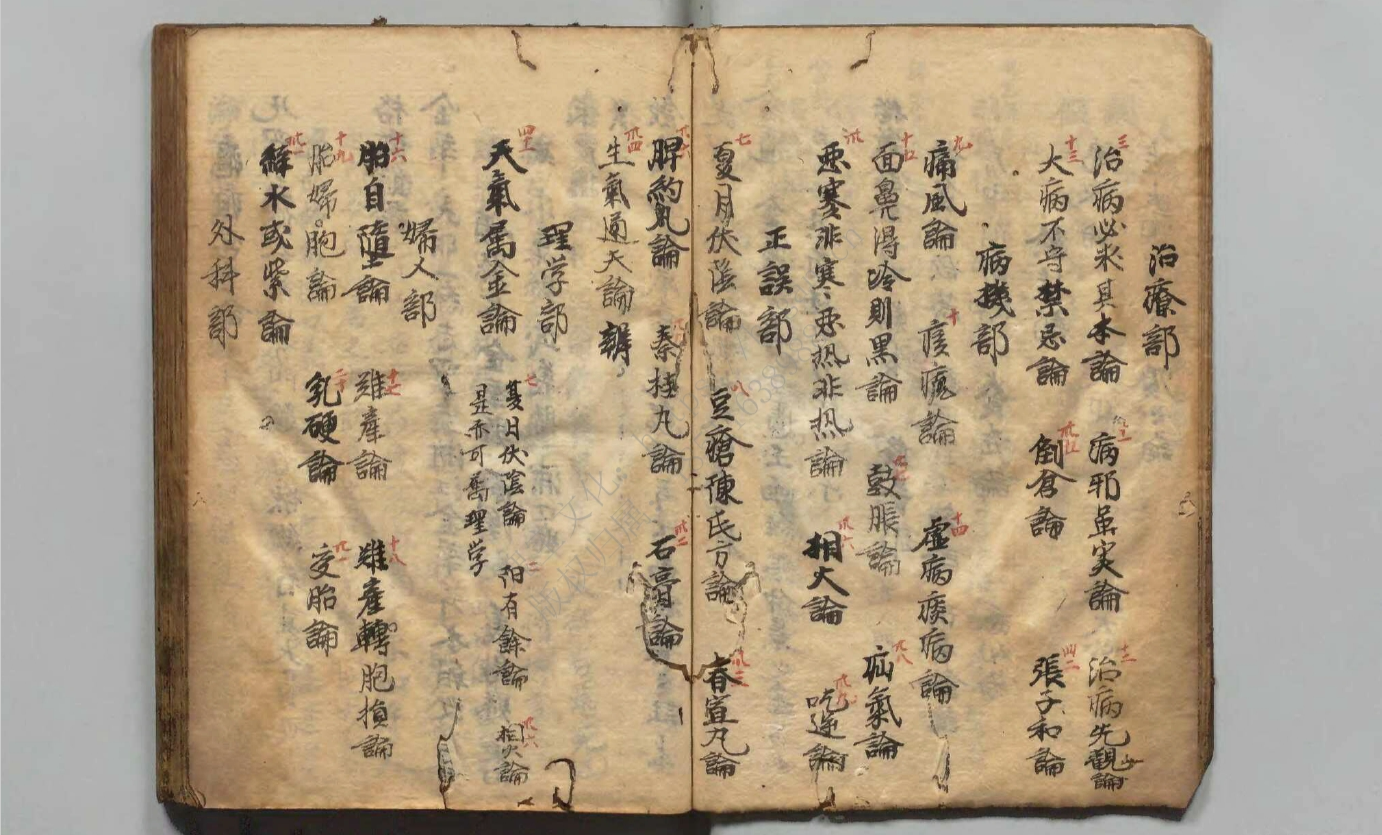 治療部
三 治病必求其本論 病邪虽实論 十二 治病先觀論
十三 大病不守禁忌論 卅五 倒倉論 四二 張子和論
病機部
九 痛风論 十 痎瘧論 十四 虚病痰病論
十五 面鼻淂冷則黒論 鼓脹論 卅八 疝氣論
卅 悪寒非寒〻悪热非热論 卅六 相火論 卅九 吃逆論
正誤部
七 夏月伏陰論 八 豆瘡陳氏方論 卅三 春宣丸論
卅六 脾約丸論 秦桂丸論 卅二 石膏論
卅四 生氣通天論 辨
理学部
四十一 天氣属金論 七 夏月伏陰論 二 阳有餘論 卅六 相火論
是亦可属理学
婦人部
十六 胎自墮論 十七 難產論 十八 難產轉胞損論
十九 胎婦胞論 二十 乳硬論 受胎論
冰或紫論
外科部